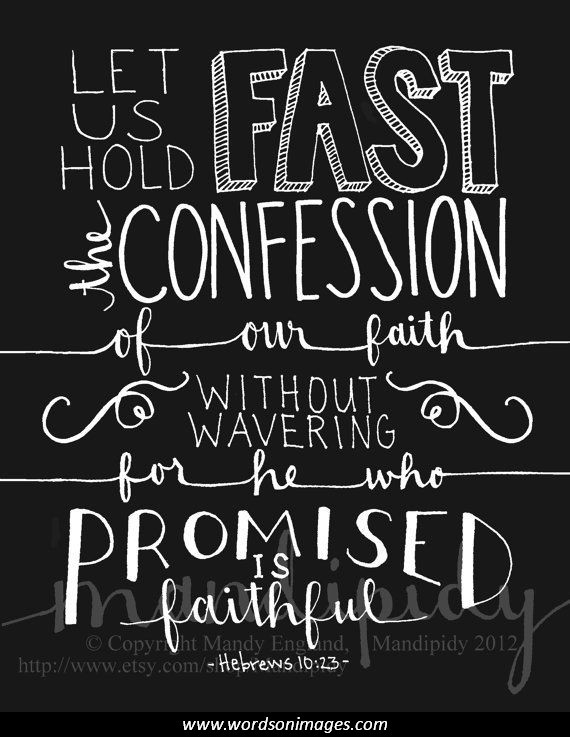 LET
US
HOLD
FAST
the CONFESSION
of our faith
WITHOUT
WAVERING
for he who
PROMISED
IS
faithful
mandipidy
© Copyright Mandy England, Mandipidy 2012
http://www.etsy.com/shop/mandipidy
-Hebrews 10:23-
www.wordsonimages.com